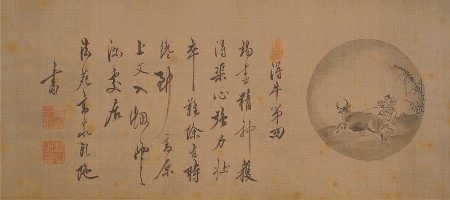 得牛第四
竭盡精神獲
得渠心強力壯
卒難除有時
纔到高原
上又入烟雲
深處居
書